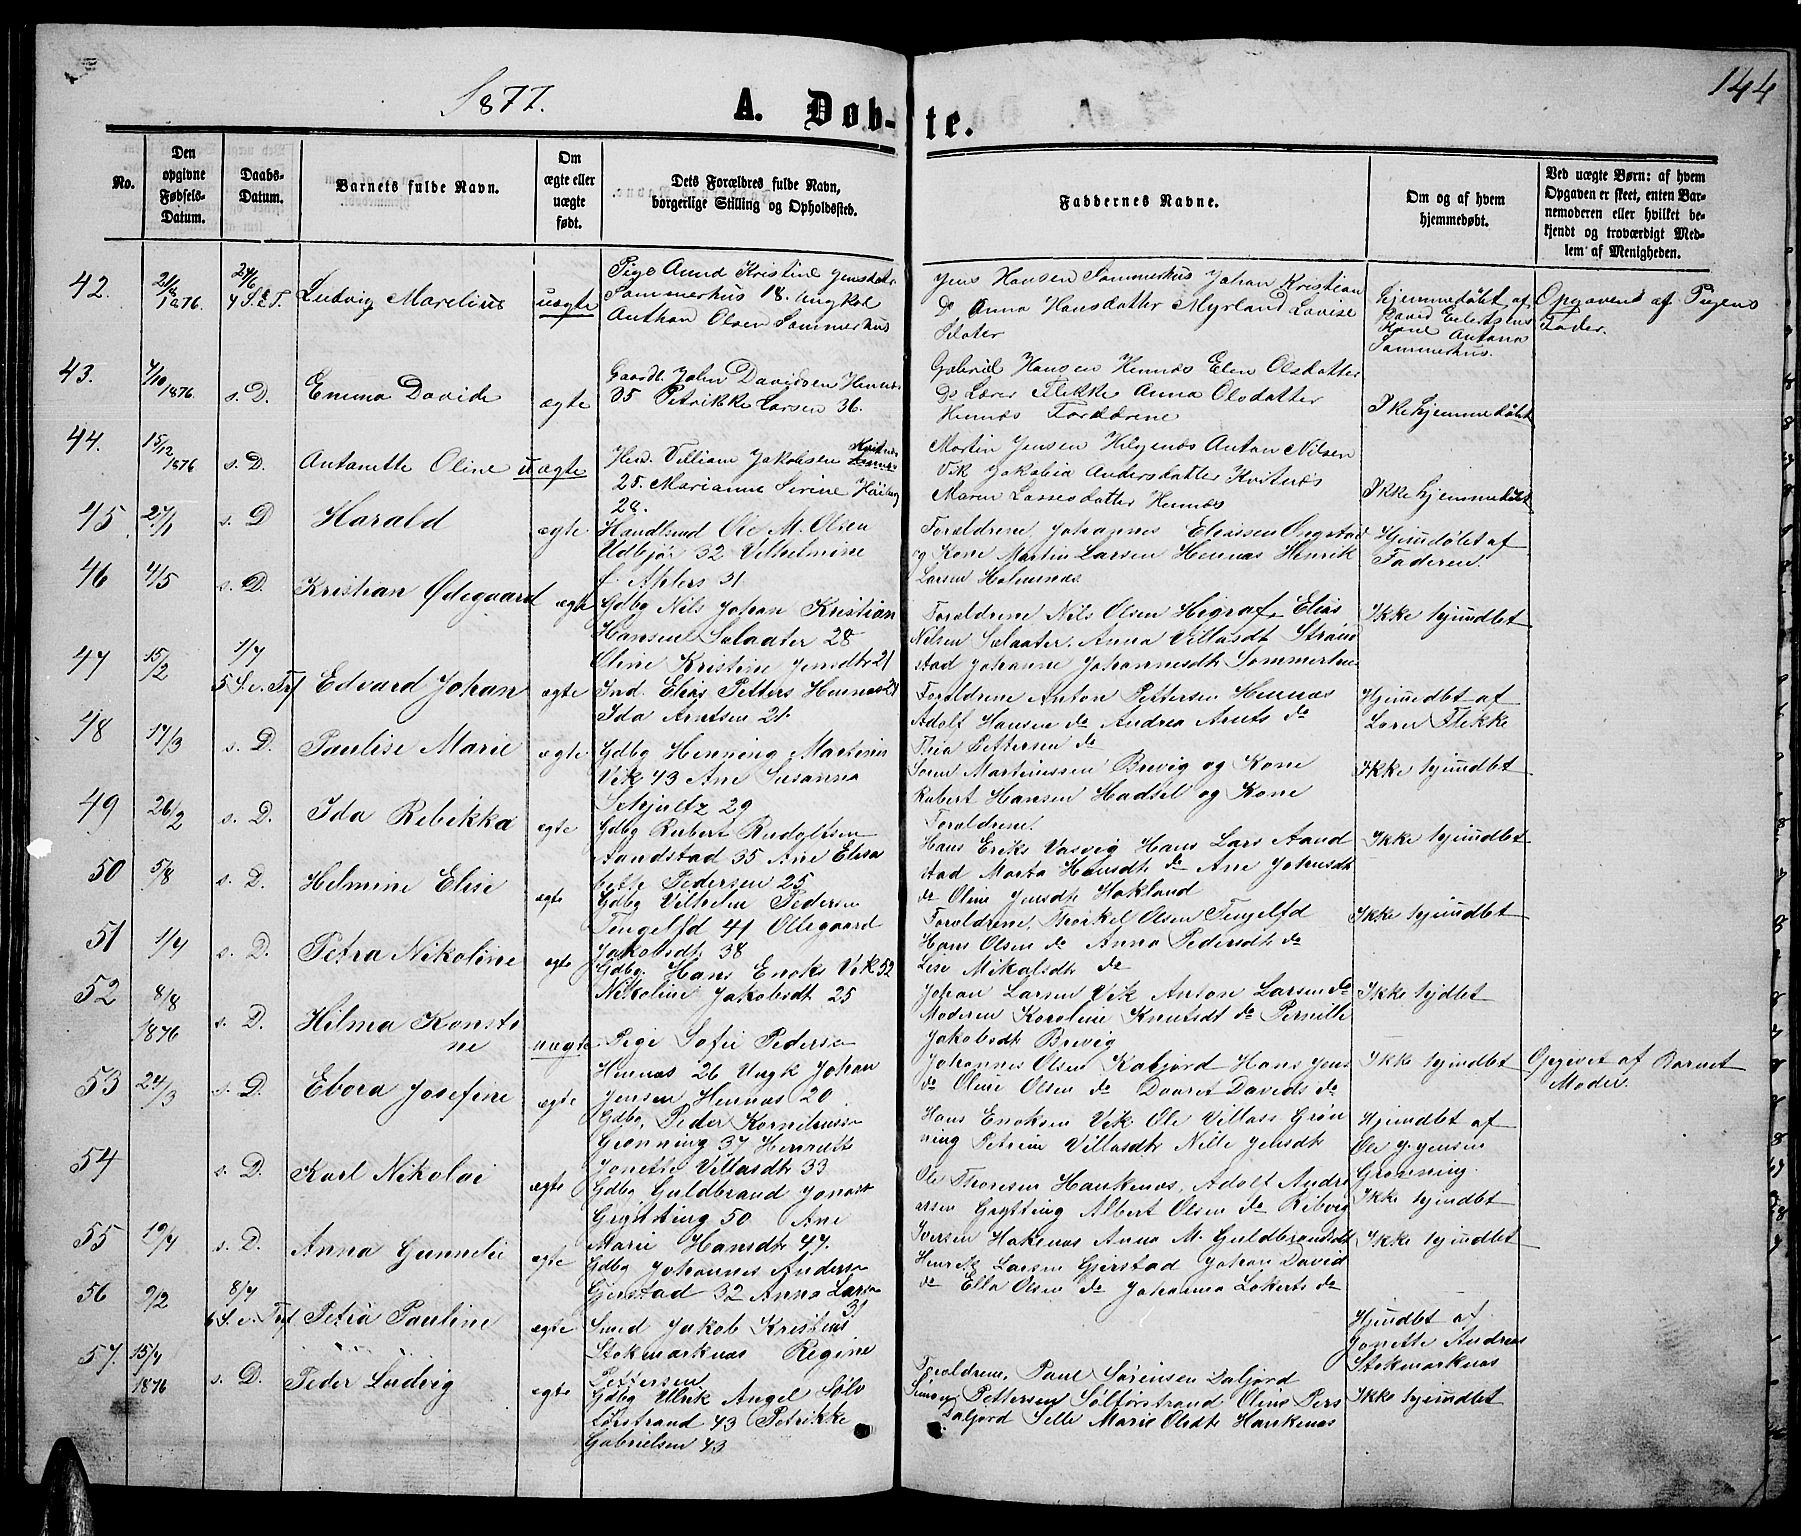 1877.
A. Døb-te.
144
No.
Den opgivne Fødsels-Datum.
Daabs-Datum.
Barnets fulde Navn.
Om ægte eller uægte født.
Dets Forældres fulde Navn, borgerlige Stilling og Opholdssted.
Faddernes Navne.
Om og af hvem hjemmedøbt.
Ved uægte Børn: af hvem Opgaven er skeet, enten Barnemoderen eller hvilket bekjendt og troværdigt Medlem af Menigheden.
42. 1876. 24/6 4 S.E.T. Ludvig Marelius uægte
Pige Anna Kristine Jensdatter
Sommerhus 18. Ungkal
Anthon Olsen Sommerhus
Jens Hansen Sommerhus Johan Kristian
do Anna Hansdatter Myrland Lovise
Slater
Hjemmedøbt af
David Eilertsens
Kone Antona
Sommerhus.
Opgavens af Pigens
Fader.
43. 4/10 1876. s. D. Emma Davide ægte
Gaardb. John Davidsen Hennæs
35 Petrikke Larsen 36.
Gabriel Hansen Hennæs Elen Olsdatter
do Lærer Flekke Anna Olsdatter
Hennæs Forældrene
Ikke hjemmedøbt
44. 15/12 1876 s. D. Antonette Oline uægte
Hend. Villiam Jakobsen Kvitnæs
25. Marianne Serine
28.
Martin Jensen Helgenæs Anton Nilsen
Vik Jakobia Andersdatter Kvitnæs
Maren Lassesdatter Hennæs
Ikke hjemmedøbt
45. 27/1 s. D Harald ægte
Handlsmd Ole M. Olsen
Udbjør 32 Vilhelmine
f. Ahlers 31
Foraldrene Johannes Eliassen Ongstad
og Kone Martin Larsen Hennæs Henrik
Larsen Holmsnæs
Hjemdøbt af
Faderen.
46 4/5 s. D. Kristian Ødegaard ægte
Gdbg Nils Johan Kristian
Hansen Salaater 28
Oline Kristine Jensdtr 21
Foraldrene Nils Olsen Higraf, Elias
Nilsen Selaater. Anna Villasdt Strøm
stad Johanne Johannesdtr Sommerhus
Ikke hjemdbt
47 15/2 1/7 5 S.e. Tref Edvard Johan ægte
Ind. Elias Petters Hennæs 21
Ida Arntsen 21.
Foraldrene Anton Pettersen Hennæs
Adolf Hansen do Andrea Arnts do
Thea Pettersen do
Hjemdbt af
Lærer Flekke
48 17/3 s. D. Paulise Marie ægte
Gdbg Henning Martinus
Vik 43 Ane Susanna
Schjultz 29
Søren Martinussen Brevig og Kone
Robert Hansen Hadsel og Kone
Foraldrene.
Ikke hjemdbt
49 26/2 s. D. Ida Rebekka ægte
Gdbg Robert Rudolfsen
Sandstad 35 Ane Elisa
bette Pedersen 25
Hans Eriks Vasvig Hans Lars Sand
stad Marta Hansdtr do Ane Johnsdtr
do Oline Jensdtr Hokland
Ikke hjemdbt
50 5/8 s. D. Helmine Elise ægte
Gdbg Vilhelm Pedersen
Tengelfd 41 Ollegaard
Jakobsdtr 38
Foraldrene, Thorkel Olsen Tengelfd
Hans Olsen do Anna Pedersdtr do
Lise Mikalsdtr do
Ikke hjemdbt
51 1/4 s. D. Petra Nikoline ægte
Gdbg. Hans Enoks Vik 52
Nikoline Jakobsdtr 25
Johan Larsen Vik Anton Larsen do
Moderen Karoline Knutsdt do Pernille
Jakobsdtr Brevig
Ikke hjdbt
52 8/8 1876 s. D. Hilma Konsti
ne uægte
Pige Sofie Pedersen
Hennæs 26 Ungk Johan
Jensen Hennæs 20
Johannes Olsen Kobjord Hans Jens
do Oline Olsen do Daaret Davids do
Ikke hjemdbt
Opgivet af Barnets
Moder.
53 24/3 s. D. Ebora Josefine ægte
Gdbg. Peder Korneliussen
Grønning 37 Henrette
Jonette Villasdtr 33
Hans Enoksen Vik Ole Villass Grøn
ning Petrine Villasdtr Nille Jensdtr
Hjemdbt af
Ole Jørgensen
Grønning.
54 s. D. Karl Nikolai ægte
Gdbg Guldbrand Jonass
Grytting 50 Ane
Marie Hansdtr 47.
Ole Thoresen Haukenæs, Adolf Andre
assen Grytting Albert Olsen do Ribvig
Iversen Hokenæs Anna M. Guldbrandsdt
Ikke hjemdbt
55 19/4 s. D. Anna Gunnelie ægte
Gdbg Johannes Andersen
Gjerstad 32 Anna Larsen
31
Henrik Larsen Gjerstad Johan David
do Ella Olsen do Johanna Lokerts do
Ikke hjemdbt
56 9/2 8/7 6 S.e. Tref Petra Pauline ægte
Smed Jakob Kristens
Stokmarknæs Regine
Pettersen
Foraldrene, Paul Sørensen Daljord
Hjemdbt af
Jonette Andreas
Stokmarknæs
57. 15/7 1876 s. D. Peder Ludvig ægte
Gdbg Ulrik Angel Sølv
førstrand 43 Petrikke
Gabrielsen 43
Simon Pettersen Sølførstrand Oline Pers
Daljord Selle Marie Olsdtr Haukenæs
Ikke hjemdbt